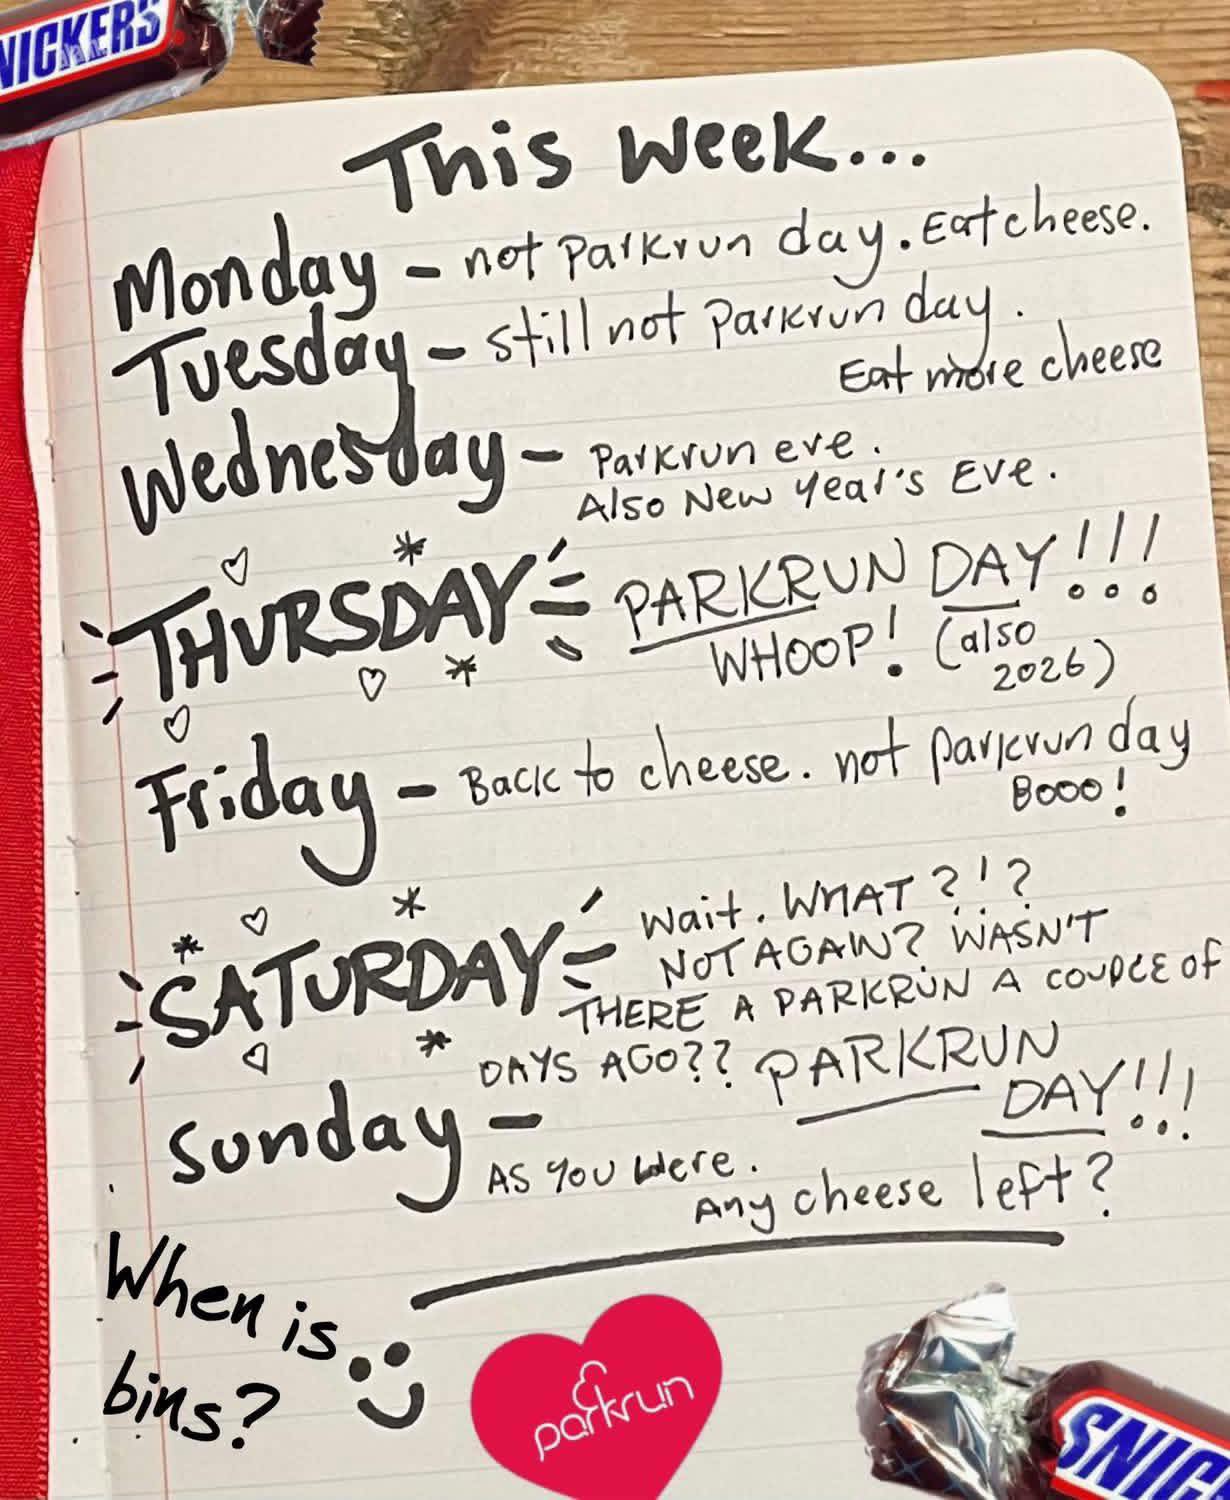 NICKERS
This Week...
Monday - not parkrun day. Eat cheese.
Tuesday - still not parkrun day.
Eat more cheese
Wednesday - Parkrun eve.
Also New Year's Eve.
THURSDAY PARKRUN DAY!!!
WHOOP! (also
2026)
Friday - Back to cheese. not parkrun day
Booo!
SATURDAY Wait. WHAT?!?
NOT AGAIN? WASN'T
THERE A PARKRUN A COUPLE OF
DAYS AGO?? PARKRUN
DAY!!!
Sunday -
AS YOU WERE.
Any cheese left?
When is
bins?
parkrun
SNIC